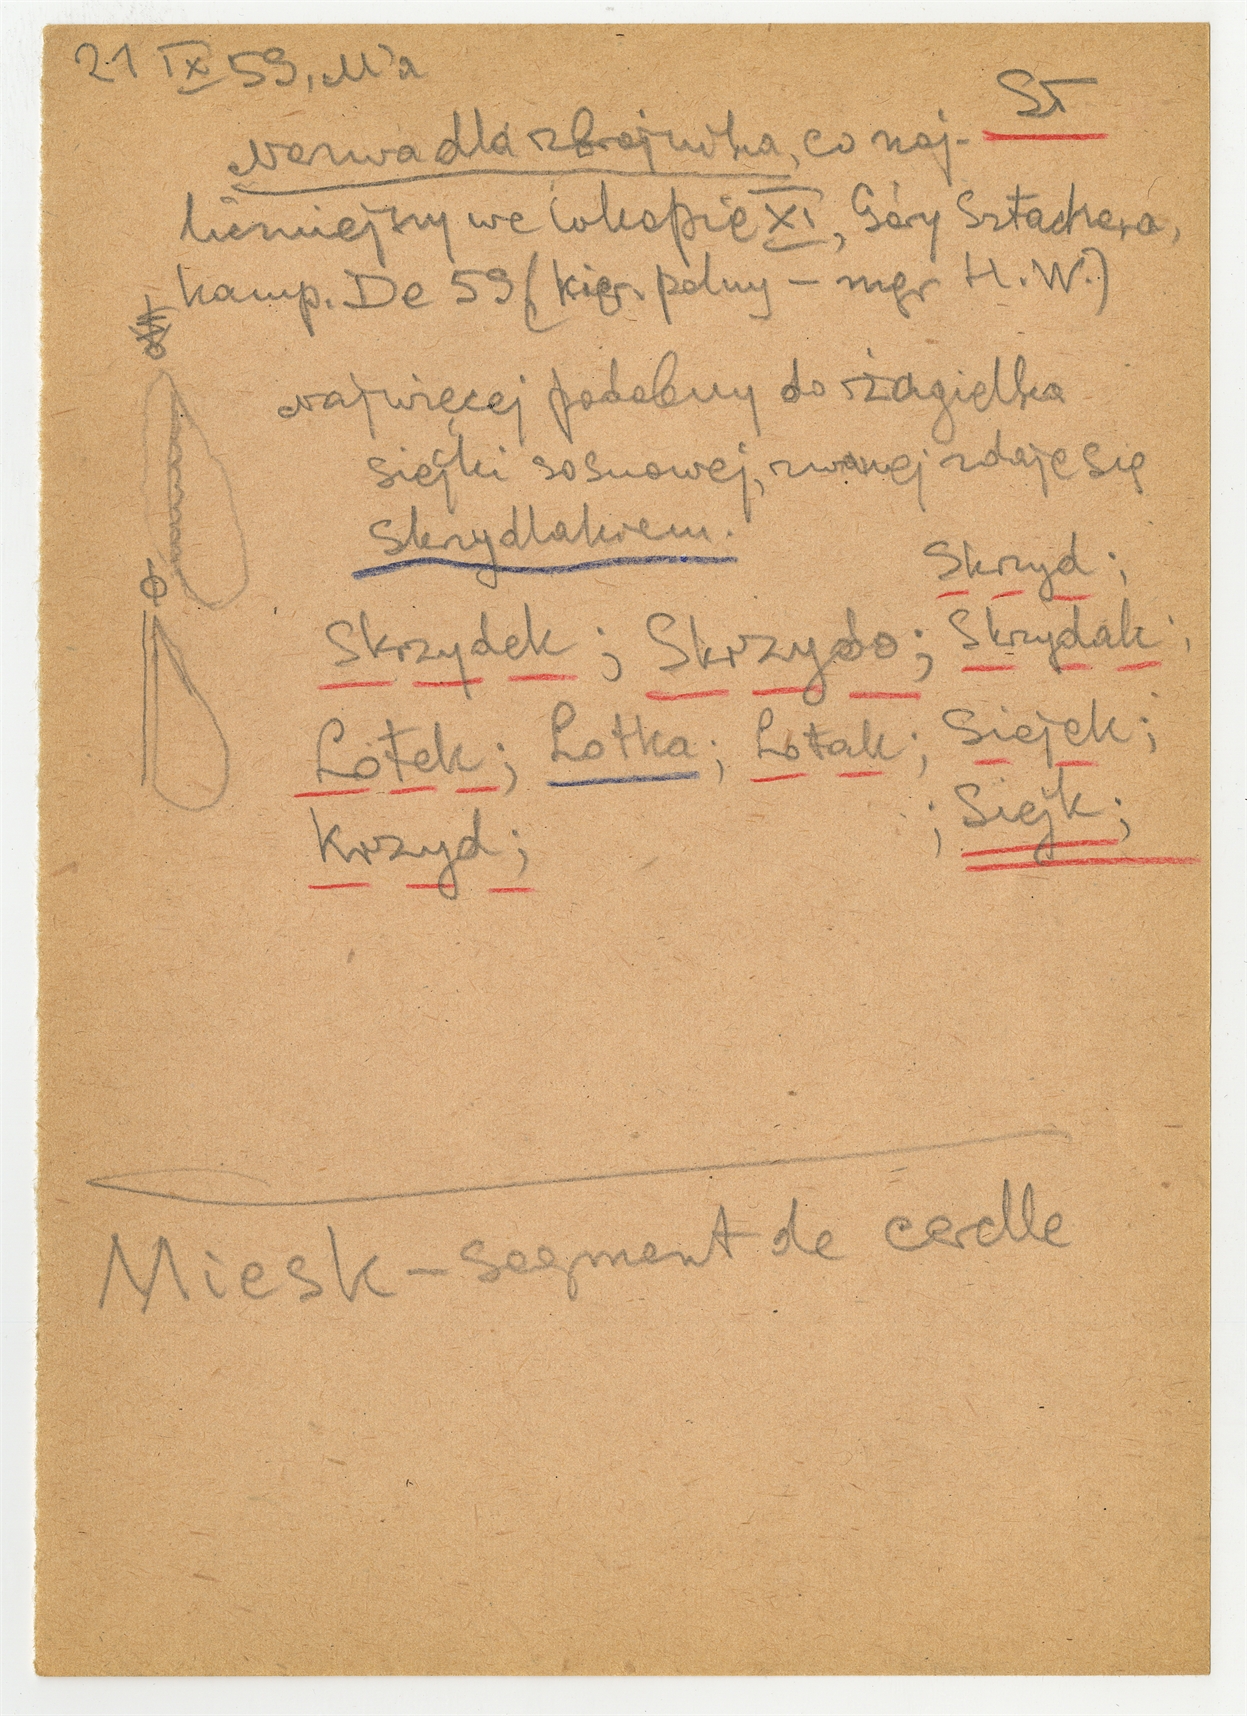 21 IX 59, M'a
St
Nazwa dla zbrojnika, co naj-
liczniejszy we wkopie XI, Góry Sztachera,
kamp. De 59 (kier. polny – mgr H. W.)
najwięcej podobny do żagielka
siejki sosnowej, zwanej zdaje się
Skrzydlakiem.
Skrzyd;
Skrzydek; Skrzydo; Skrzydak;
Lotek; Lotka; Lotak; Siejek;
Krzyd; ; Siejk;
Miesk – segment de cerclle